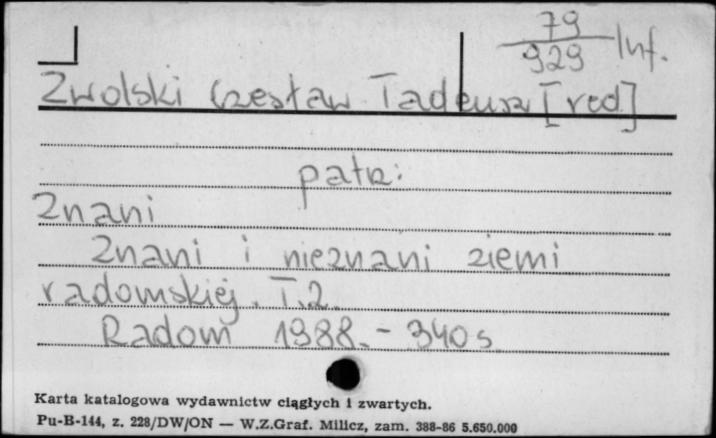 79
929 Inf.
Zwolski Czesław Tadeusz [red]
patrz:
Znani
Znani i nieznani ziemi
radomskiej. T.2.
Radom 1988. - 340 s
Karta katalogowa wydawnictw ciągłych i zwartych.
Pu-B-144, z. 228/DW/ON — W.Z.Graf. Milicz, zam. 388-86 5.650.000